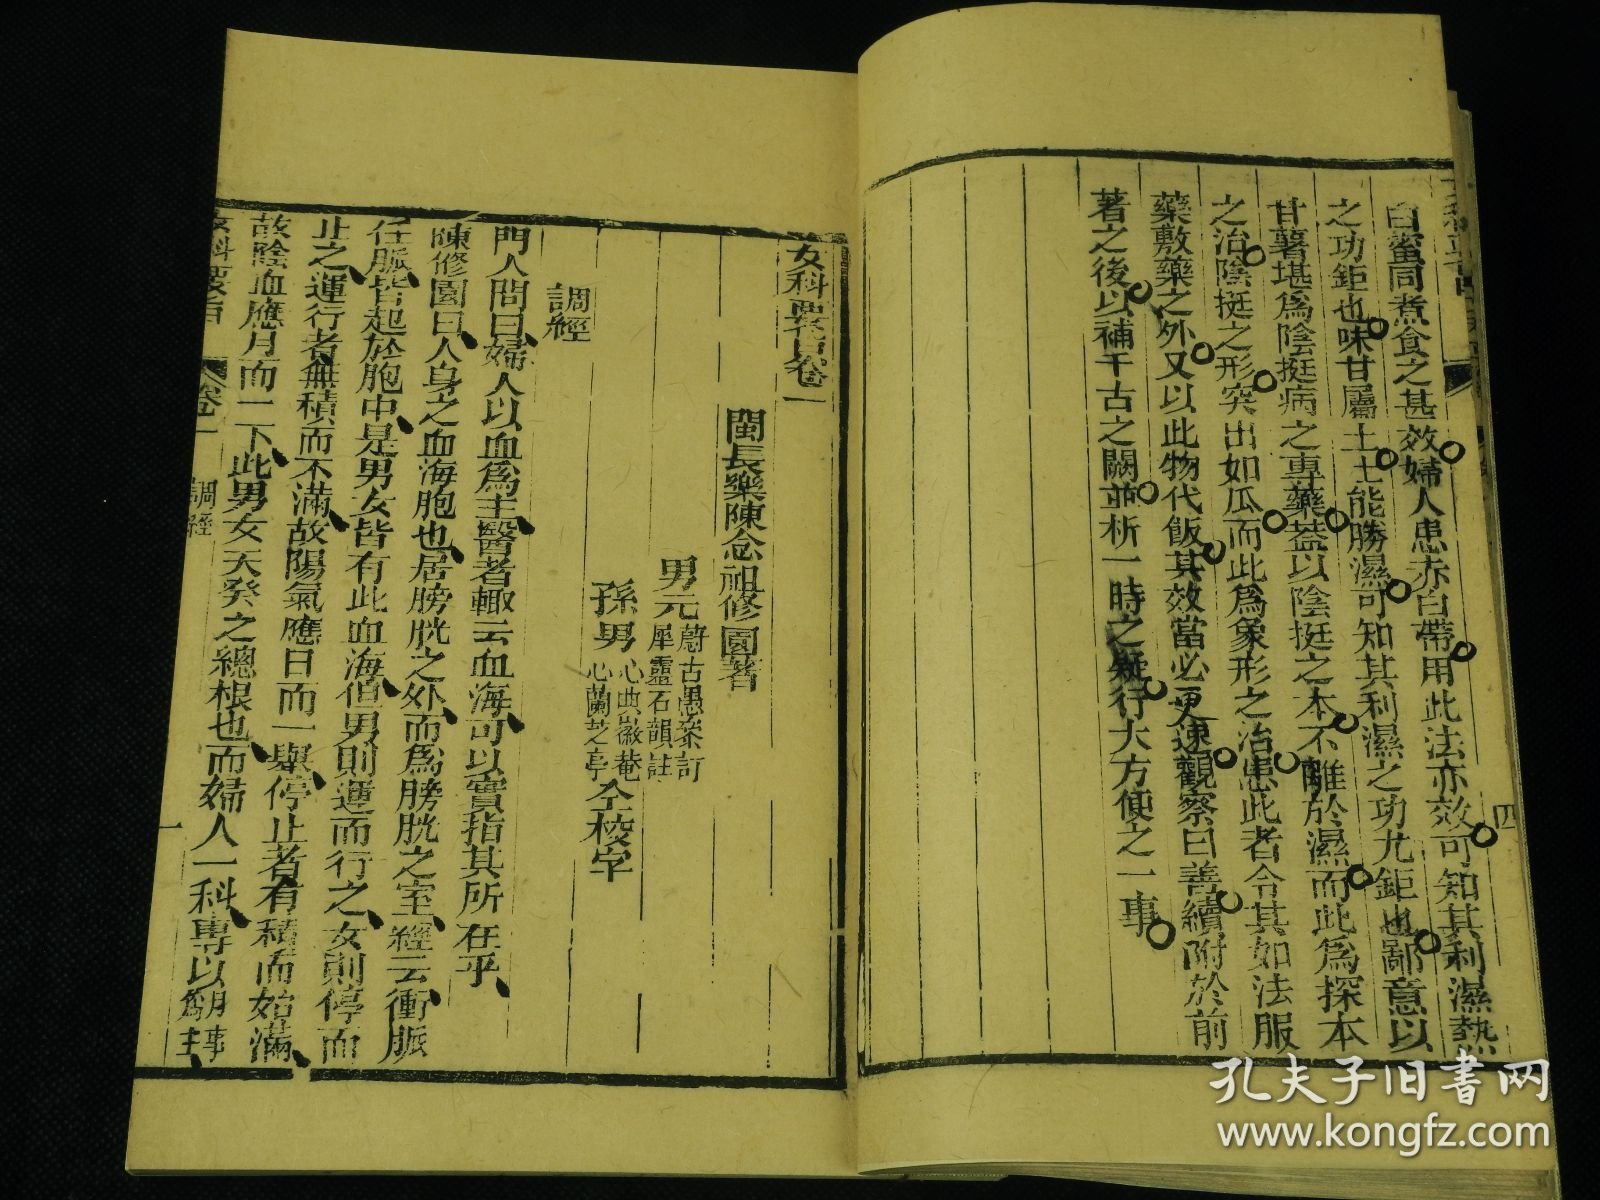 白蜜同煮食之甚效婦人患赤白帶用此法亦效可知其利濕熱
之功鉅也味甘屬土土能勝濕可知其利濕之功尤鉅也鄙意以
甘薯堪爲陰挺病之專藥蓋以陰挺之本不離於濕而此爲探本
之治陰挺之形突出如瓜而此爲象形之治患此者令其如法服
藥敷藥之外又以此物代飯其效當必更速觀察曰善續附於前
著之後以補千古之闕並析一時之疑行大方便之一事
四
女科要旨卷一
閩長樂陳念祖修園著
男元
蔚古愚叅訂
犀靈石韻註
孫男
心典徽菴
心蘭芝亭
仝校字
調經
門人問曰婦人以血爲主醫者輙云血海可以實指其所在乎
陳修園曰人身之血海胞也居膀胱之外而爲膀胱之室經云衝脈
任脈皆起於胞中是男女皆有此血海但男則運而行之女則停而
止之運行者無積而不滿故陽氣應日而一舉停止者有積而始滿
故陰血應月而一下此男女天癸之總根也而婦人一科專以月事爲主
女科要旨 卷一 調經 一
孔夫子旧书网
www.kongfz.com